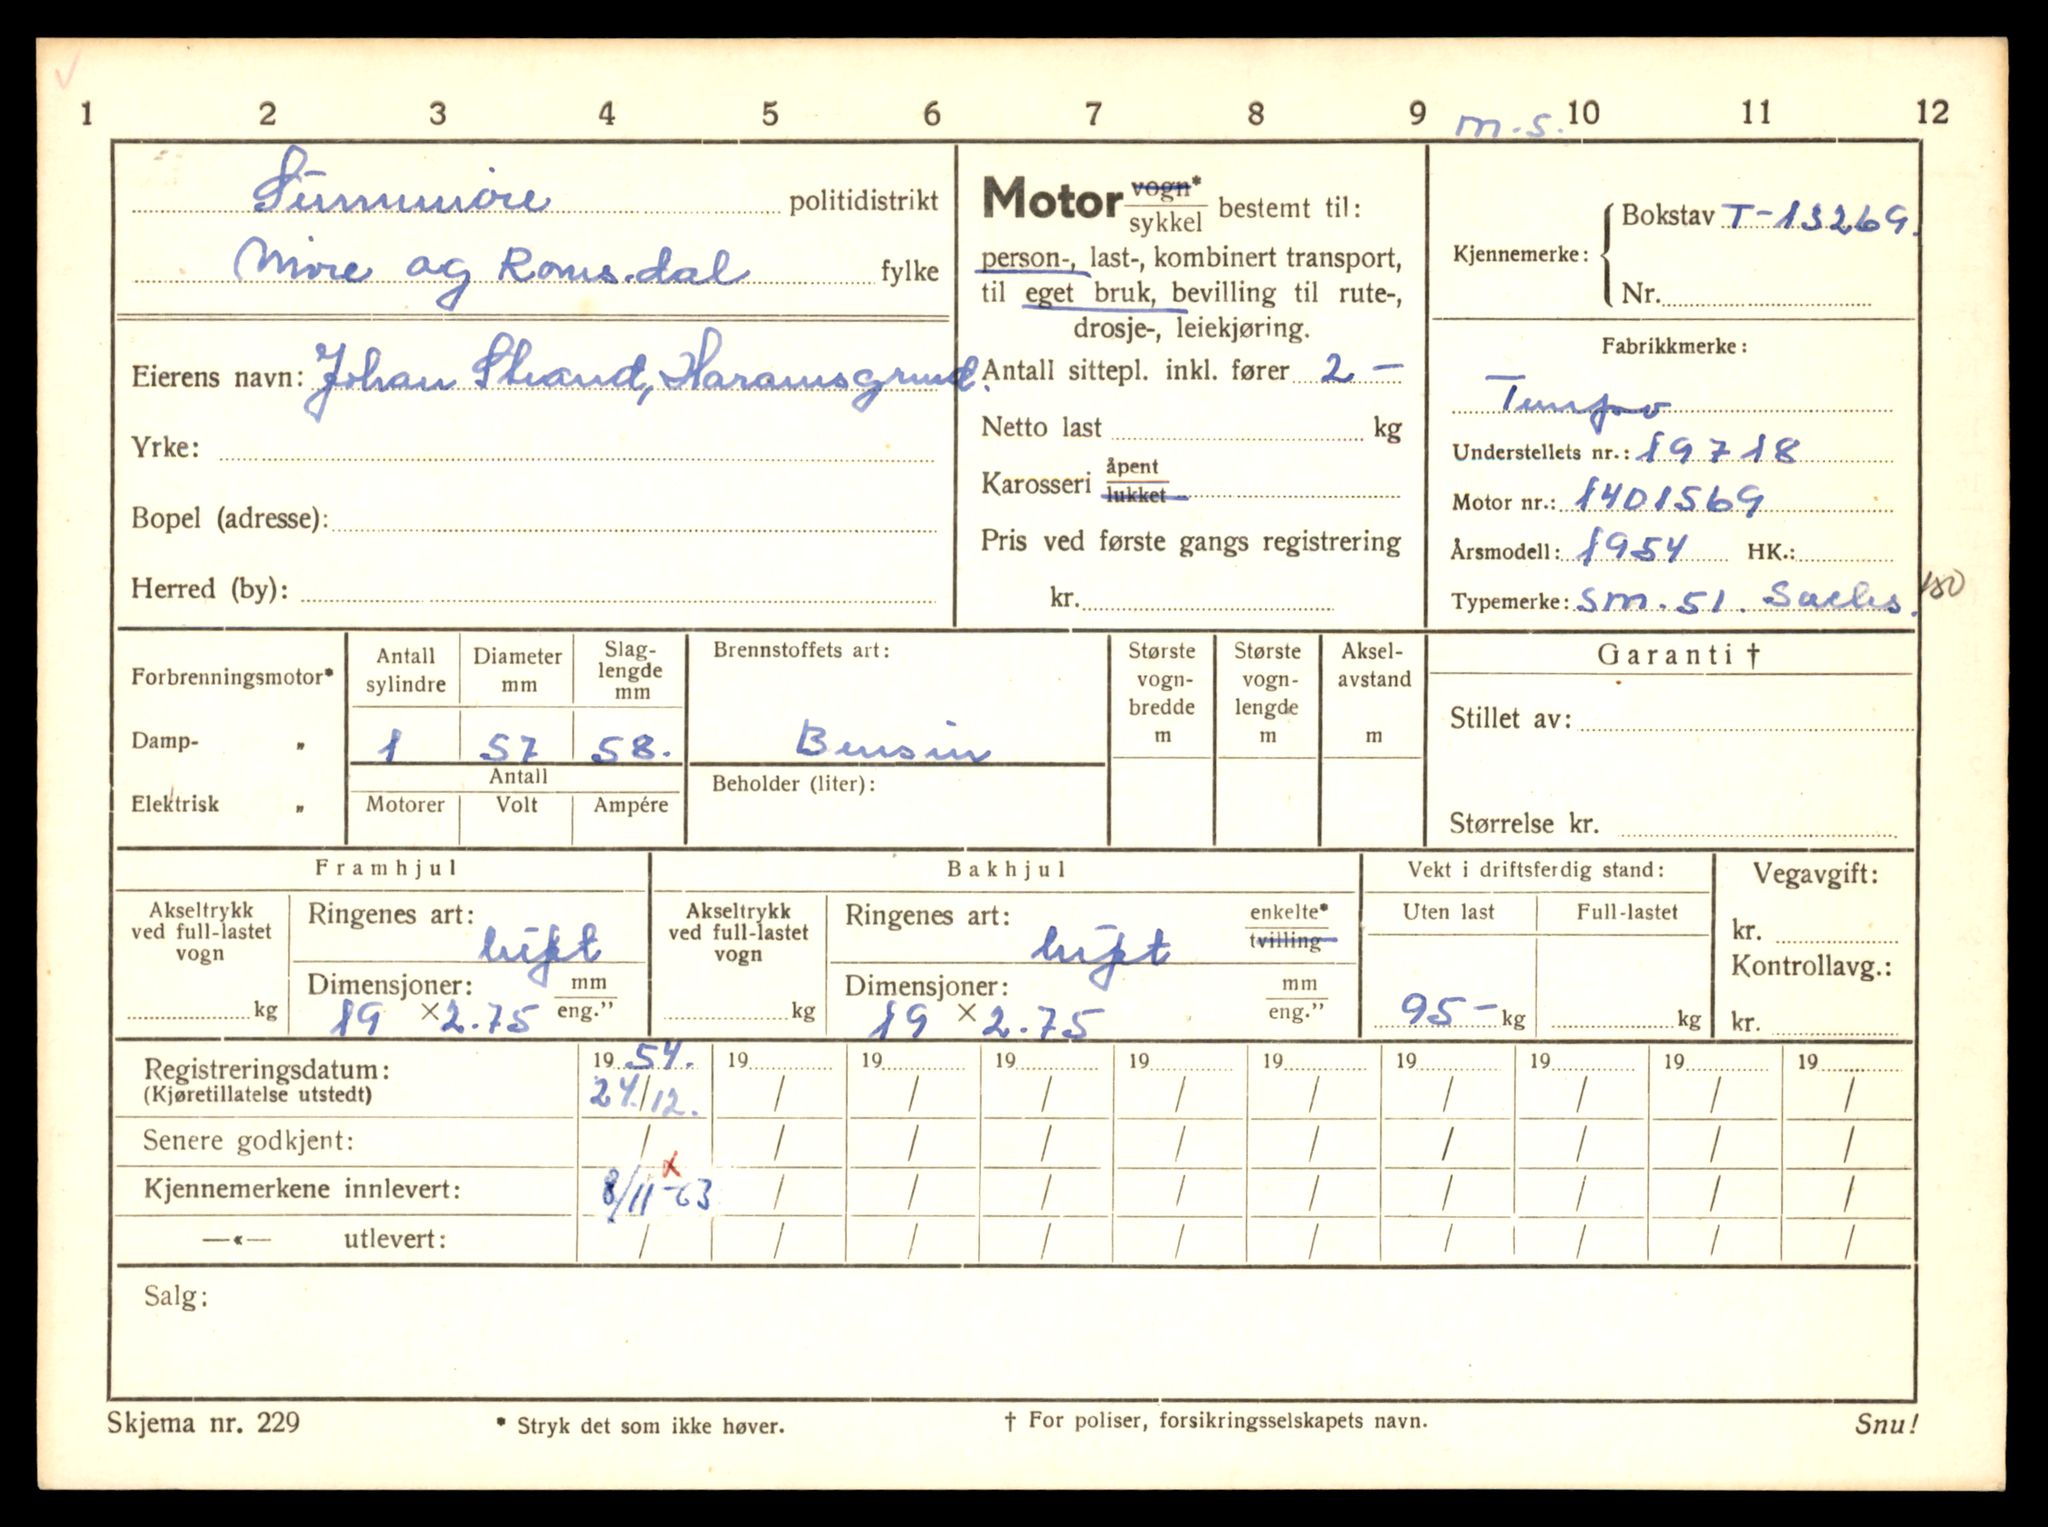 1 2 3 4 5 6 7 8 9 10 11 12
m.s.
Sunnmöre politidistrikt
Möre og Romsdal fylke
Eierens navn: Johan Strand, Haramsgrend.
Yrke:
Bopel (adresse):
Herred (by):
Motor vogn* sykkel bestemt til:
person-, last-, kombinert transport,
til eget bruk, bevilling til rute-,
drosje-, leiekjøring.
Antall sittepl. inkl. fører 2 –
Netto last kg
Karosseri åpent lukket
Pris ved første gangs registrering
kr.
Kjennemerke: Bokstav T-13269.
Nr.
Fabrikkmerke:
Tempo
Understellets nr.: 19718
Motor nr.: 1401569
Årsmodell: 1954 HK.:
Typemerke: Sm. 51. Sachs. 150
Forbrenningsmotor*
Damp- „
Elektrisk „
Antall sylindre
Diameter mm
Slag-lengde mm
1 57 58.
Antall
Motorer Volt Ampére
Brennstoffets art:
Bensin
Beholder (liter):
Største vogn-bredde m
Største vogn-lengde m
Aksel-avstand m
Garanti †
Stillet av:
Størrelse kr.
Framhjul
Akseltrykk ved full-lastet vogn
kg
Ringenes art:
luft
Dimensjoner: mm eng.”
19 × 2.75
Bakhjul
Akseltrykk ved full-lastet vogn
kg
Ringenes art: enkelte* tvilling
luft
Dimensjoner: mm eng.”
19 × 2.75
Vekt i driftsferdig stand:
Uten last Full-lastet
95 – kg kg
Vegavgift:
kr.
Kontrollavg.:
kr.
Registreringsdatum: 19 54. 19 19 19 19 19 19 19 19 19
(Kjøretillatelse utstedt) 24/12. / / / / / / / / /
Senere godkjent: / / / / / / / / / /
x
Kjennemerkene innlevert: 8/11-63 / / / / / / / / /
—«— utlevert: / / / / / / / / / /
Salg:
Skjema nr. 229 * Stryk det som ikke høver. † For poliser, forsikringsselskapets navn. Snu!